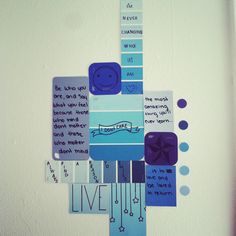 We
NEVER
CHANGING
WHO
We
ARE
Be who you
are, and say
what you feel
because those
who mind
dont matter
and those
who matter
dont mind
I DONT CARE
the most
amazing
thing you'll
ever learn...
... is to
love and
be loved
in return
LIVE